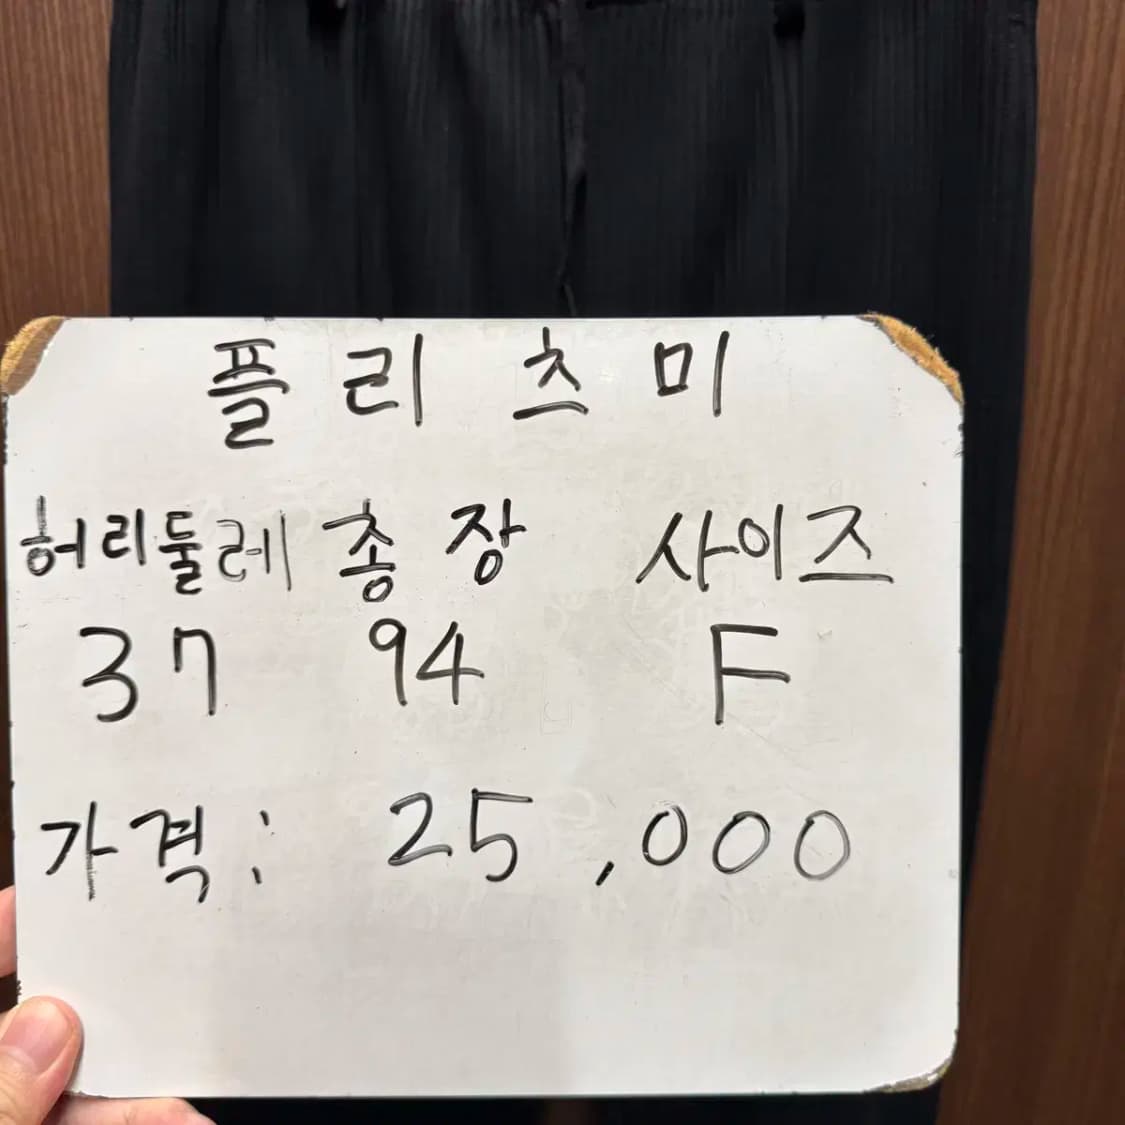 플리츠미
허리둘레 총장 사이즈
37 94 F
가격: 25,000